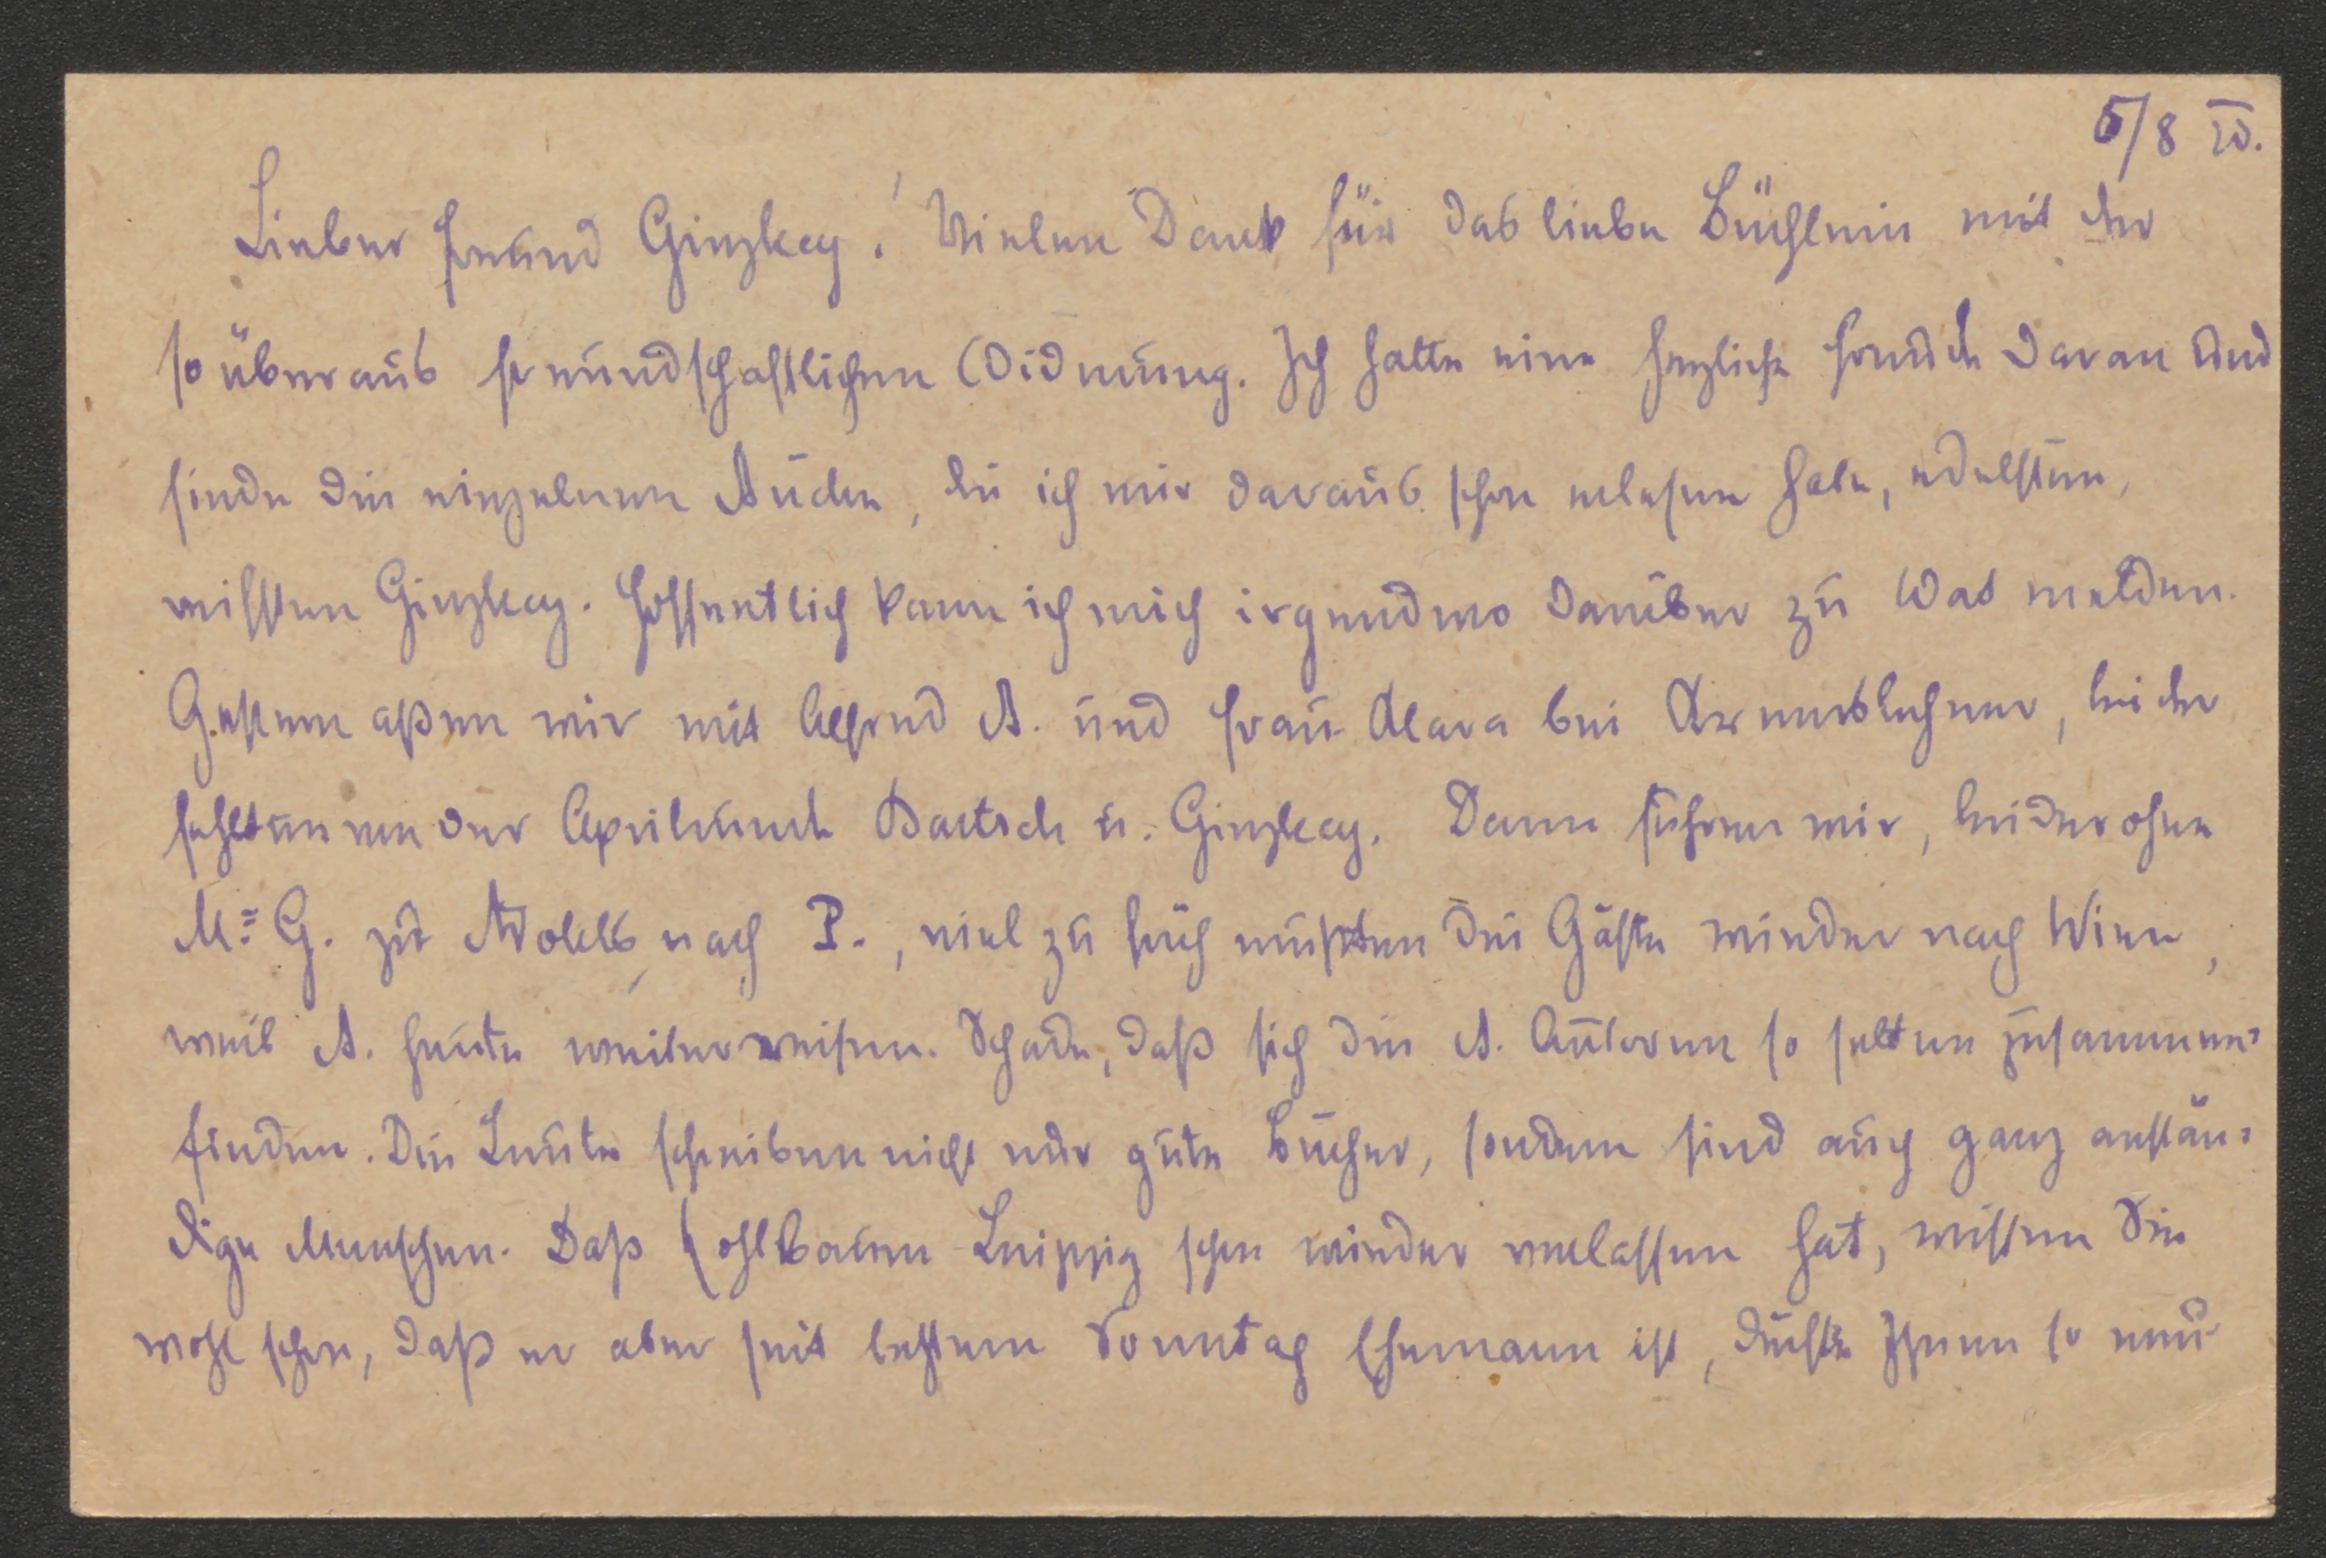 5/8 20.
Lieber Freund Ginzkey! Vielen Dank für das liebe Büchlein mit der
so überaus freundschaftlichen Widmung. Ich hatte eine herzliche Freude daran und
finde die einzelnen Stücke, die ich mir daraus schon erlesen habe, edelsten,
reifsten Ginzkey. Hoffentlich kann ich mich irgendwo darüber zu Wort melden.
Gestern aßen wir mit Alfred St. und Frau Klara bei leider
fehlten von der Bartsch u. Ginzkey. Dann fuhren wir, leider ohne
M= G. zu nach P., viel zu früh mußten die Gäste wieder nach Wien,
weil St. heute weiterreisen. Schade, daß sich die St. Autoren so selten zusammen=
finden. Die Leute schreiben nicht nur gute Bücher, sondern sind auch ganz anstän=
dige Menschen. Daß Hohlbaum Leipzig schon wieder verlassen hat, wissen Sie
wohl schon, daß er aber seit letztem Sonntag Ehemann ist, dürfte Ihnen so neu